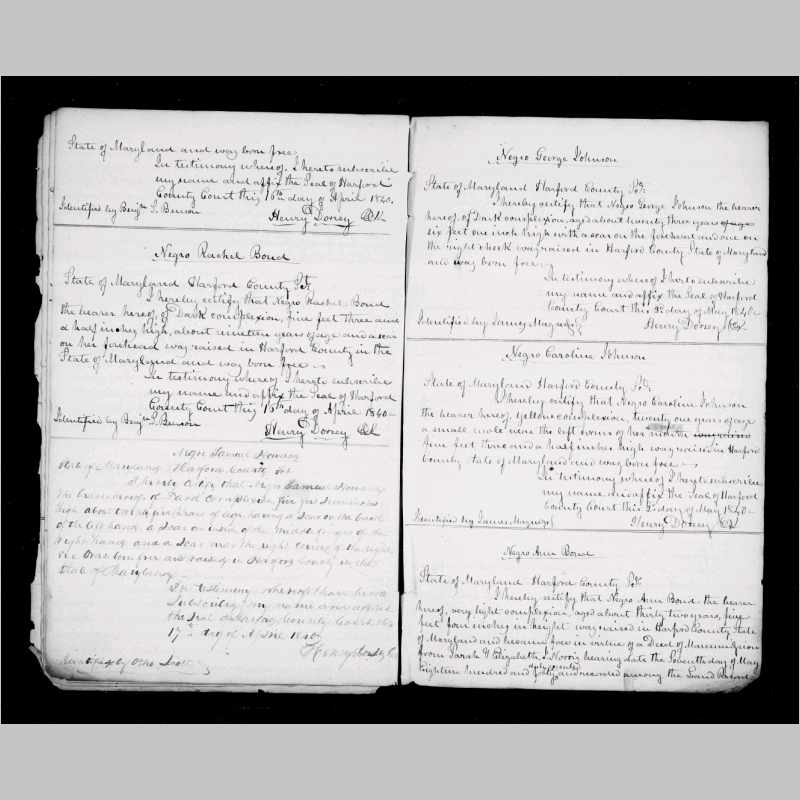 State of Maryland and was born free.
In testimony whereof, I hereto subscribe
my name and affix the Seal of Harford
County Court this 16th day of April 1840.
Identified by Benjn S. Benson
Henry Dorsey Clk
Negro Rachel Bond
State of Maryland Harford County Sct.
I hereby certify that Negro Rachel Bond
the bearer hereof, of Dark complexion, five feet three and
a half inches high, about nineteen years of age and a scar
on her forehead was raised in Harford County in the
State of Maryland and was born free
In testimony whereof I hereto subscribe
my name and affix the Seal of Harford
County Court this day of April 1840
Identified by Benjn S. Benson
Henry Dorsey Clk
Negro Samuel
State of Maryland Harford County Sct
I hereby Certify that Negro Samuel
the bearer hereof of Dark Complexion, five feet inches
high about years of age having a Scar on the back
of the left hand a Scar on inside of the middle finger of the
right hand and a Scar near the right corner of the right
eye was born free and raised in Harford County in the
State of Maryland
In testimony whereof I have hereto
Subscribed my name and affixed
the Seal of Harford County Court this
17th day of April 1840
Henry Dorsey Clk
Identified by Otho Scott
Negro George Johnson
State of Maryland Harford County Sct.
I hereby certify that Negro George Johnson the bearer
hereof, of Dark complexion aged about twenty three years of age
six feet one inch high with a scar on the forehead and one on
the right cheek was raised in Harford County State of Maryland
and was born free
In testimony whereof I hereto subscribe
my name and affix the Seal of Harford
County Court this day of May 1840
Identified by James
Henry Dorsey Clk.
Negro Caroline Johnson
State of Maryland Harford County Sct.
I hereby certify that Negro Caroline Johnson
the bearer hereof, yellow complexion, twenty one years of age
a small mole near the left corner of her mouth
five feet three and a half inches high was raised in Harford
County State of Maryland and was born free
In testimony whereof I hereto subscribe
my name and affix the Seal of Harford
County Court this day of May 1840
Identified by James
Henry Dorsey Clk
Negro Ann Bond
State of Maryland Harford County Sct.
I hereby certify that Negro Ann Bond the bearer
hereof, very light complexion, aged about thirty two years, five
feet four inches in height was raised in Harford County State
of Maryland and became free in virtue of a Deed of Manumission
from Sarah & Elizabeth Norris bearing date the Seventh day of May
Eighteen hundred and forty duly executed and recorded among the Land Record